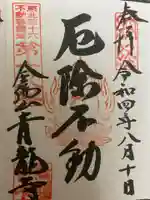 奉拝 令和四年八月十日
厄除不動
金剛山青龍寺
東北三十六
不動尊霊場